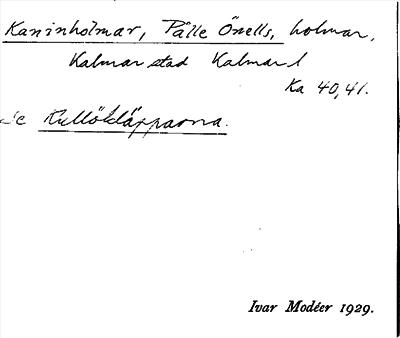 Kaninholmar, Pålle Önells, holmar,
Kalmar stad Kalmar l
Ka 40,41.
Se Kullöklapparna.
Ivar Modéer 1929.